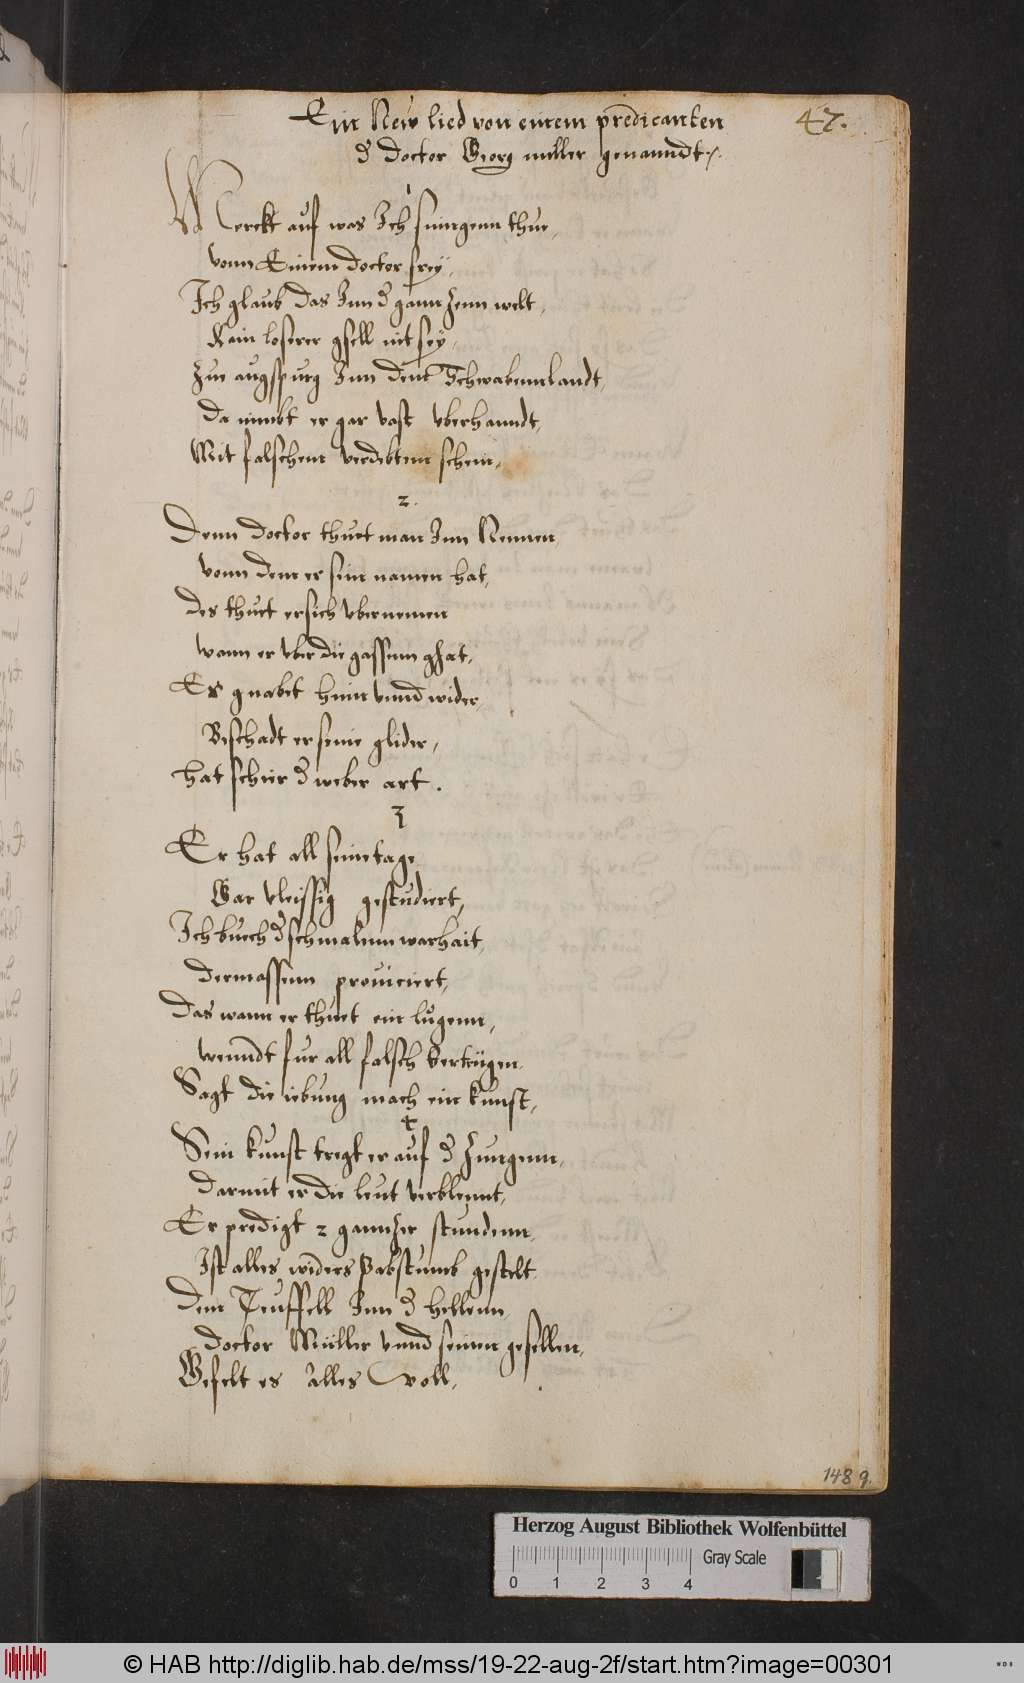 Ein New lied von einem predicanten
47.
d doctor Georg miller genanndt
1
Merckt auf was Ich singenn thue,
vonn Einem doctor frey,
Ich glaub das Inn d gannzenn welt,
Kain loserer gsell nit sey,
Zue augspurg Inn dem Schwabennlandt,
Da nimbt er gar vast vberhanndt,
Mit falschem verdektem schein,
2.
Denn doctor thuet man Inn Nennen
vonn dem er sein namen hat,
des thuet er sich vbernemen
wann er vber die gassenn ghat,
Er gnabet hinn vnnd wider,
Beschadt er seine glider,
hat schier d weber art.
3
Er hat all seine tage
Gar vleissig gestudiert,
dermassenn prouiciert,
Das wann er thuet ein lugenn,
fur all falsch
Sagt die iebung mach ein kunst,
4
Sein kunst tregt er auf d Zungenn,
darmit er die leut verblennt,
Er predigt 2 gannzer stundenn,
Ist alles widers Pabstumb gestelt
Dem Teuffell Inn d hellenn
doctor Müller vnnd seinen gesellen,
Gefelt es alles woll,
148 g.
Herzog August Bibliothek Wolfenbüttel
Gray Scale
0 1 2 3 4
© HAB http://diglib.hab.de/mss/19-22-aug-2f/start.htm?image=00301